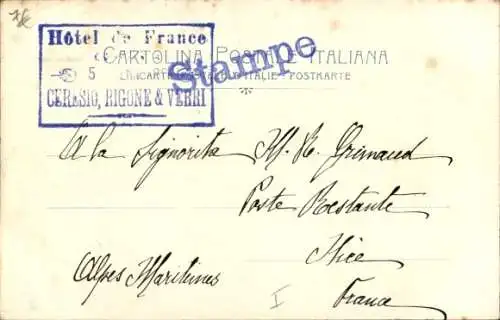 Hôtel de France
CARTOLINA POSTALE ITALIANA
Stampe
5
CARTE POSTALE D'ITALIE - POSTKARTE
CERESIO, RIGONE & VERRI
A la Signorita M. R. Grimaud
Poste Restante
Nice
Alpes Maritimes
I
France